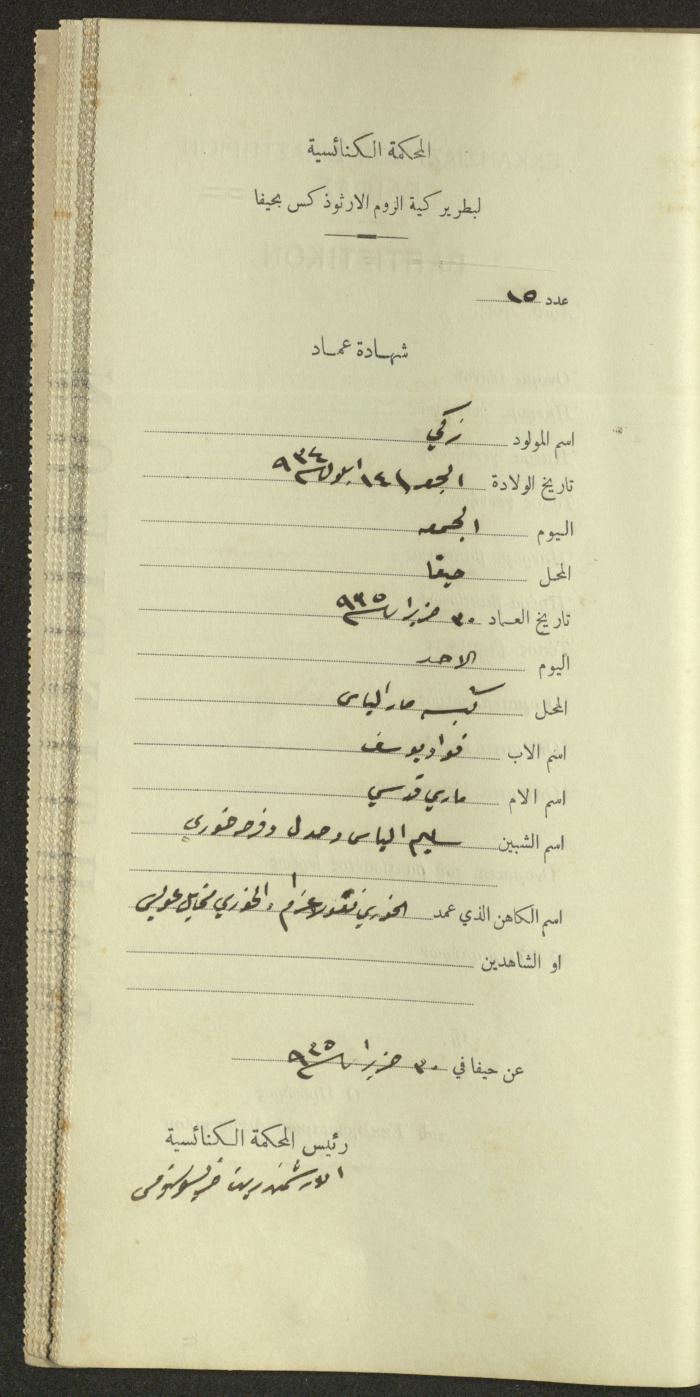 المحكمة الكنائسية
لبطريركية الروم الارثوذكس بحيفا
عدد ١٥
شهادة عماد
اسم المولود زكي
تاريخ الولادة الجمعه ١٤ ايلول ٩٣٤
اليوم الجمعه
المحل حيفا
تاريخ العماد ٣٠ حزيران ٩٣٥
اليوم الاحد
المحل كنيسه مار الياس
اسم الاب فواد يوسف
اسم الام ماري قدسي
اسم الشبين سليم الياس وفرح خوري
اسم الكاهن الذي عمد الخوري نقولا عزام والخوري
او الشاهدين
عن حيفا في ٣٠ حزيران ٩٣٥
رئيس المحكمة الكنائسية
الارشمندريت